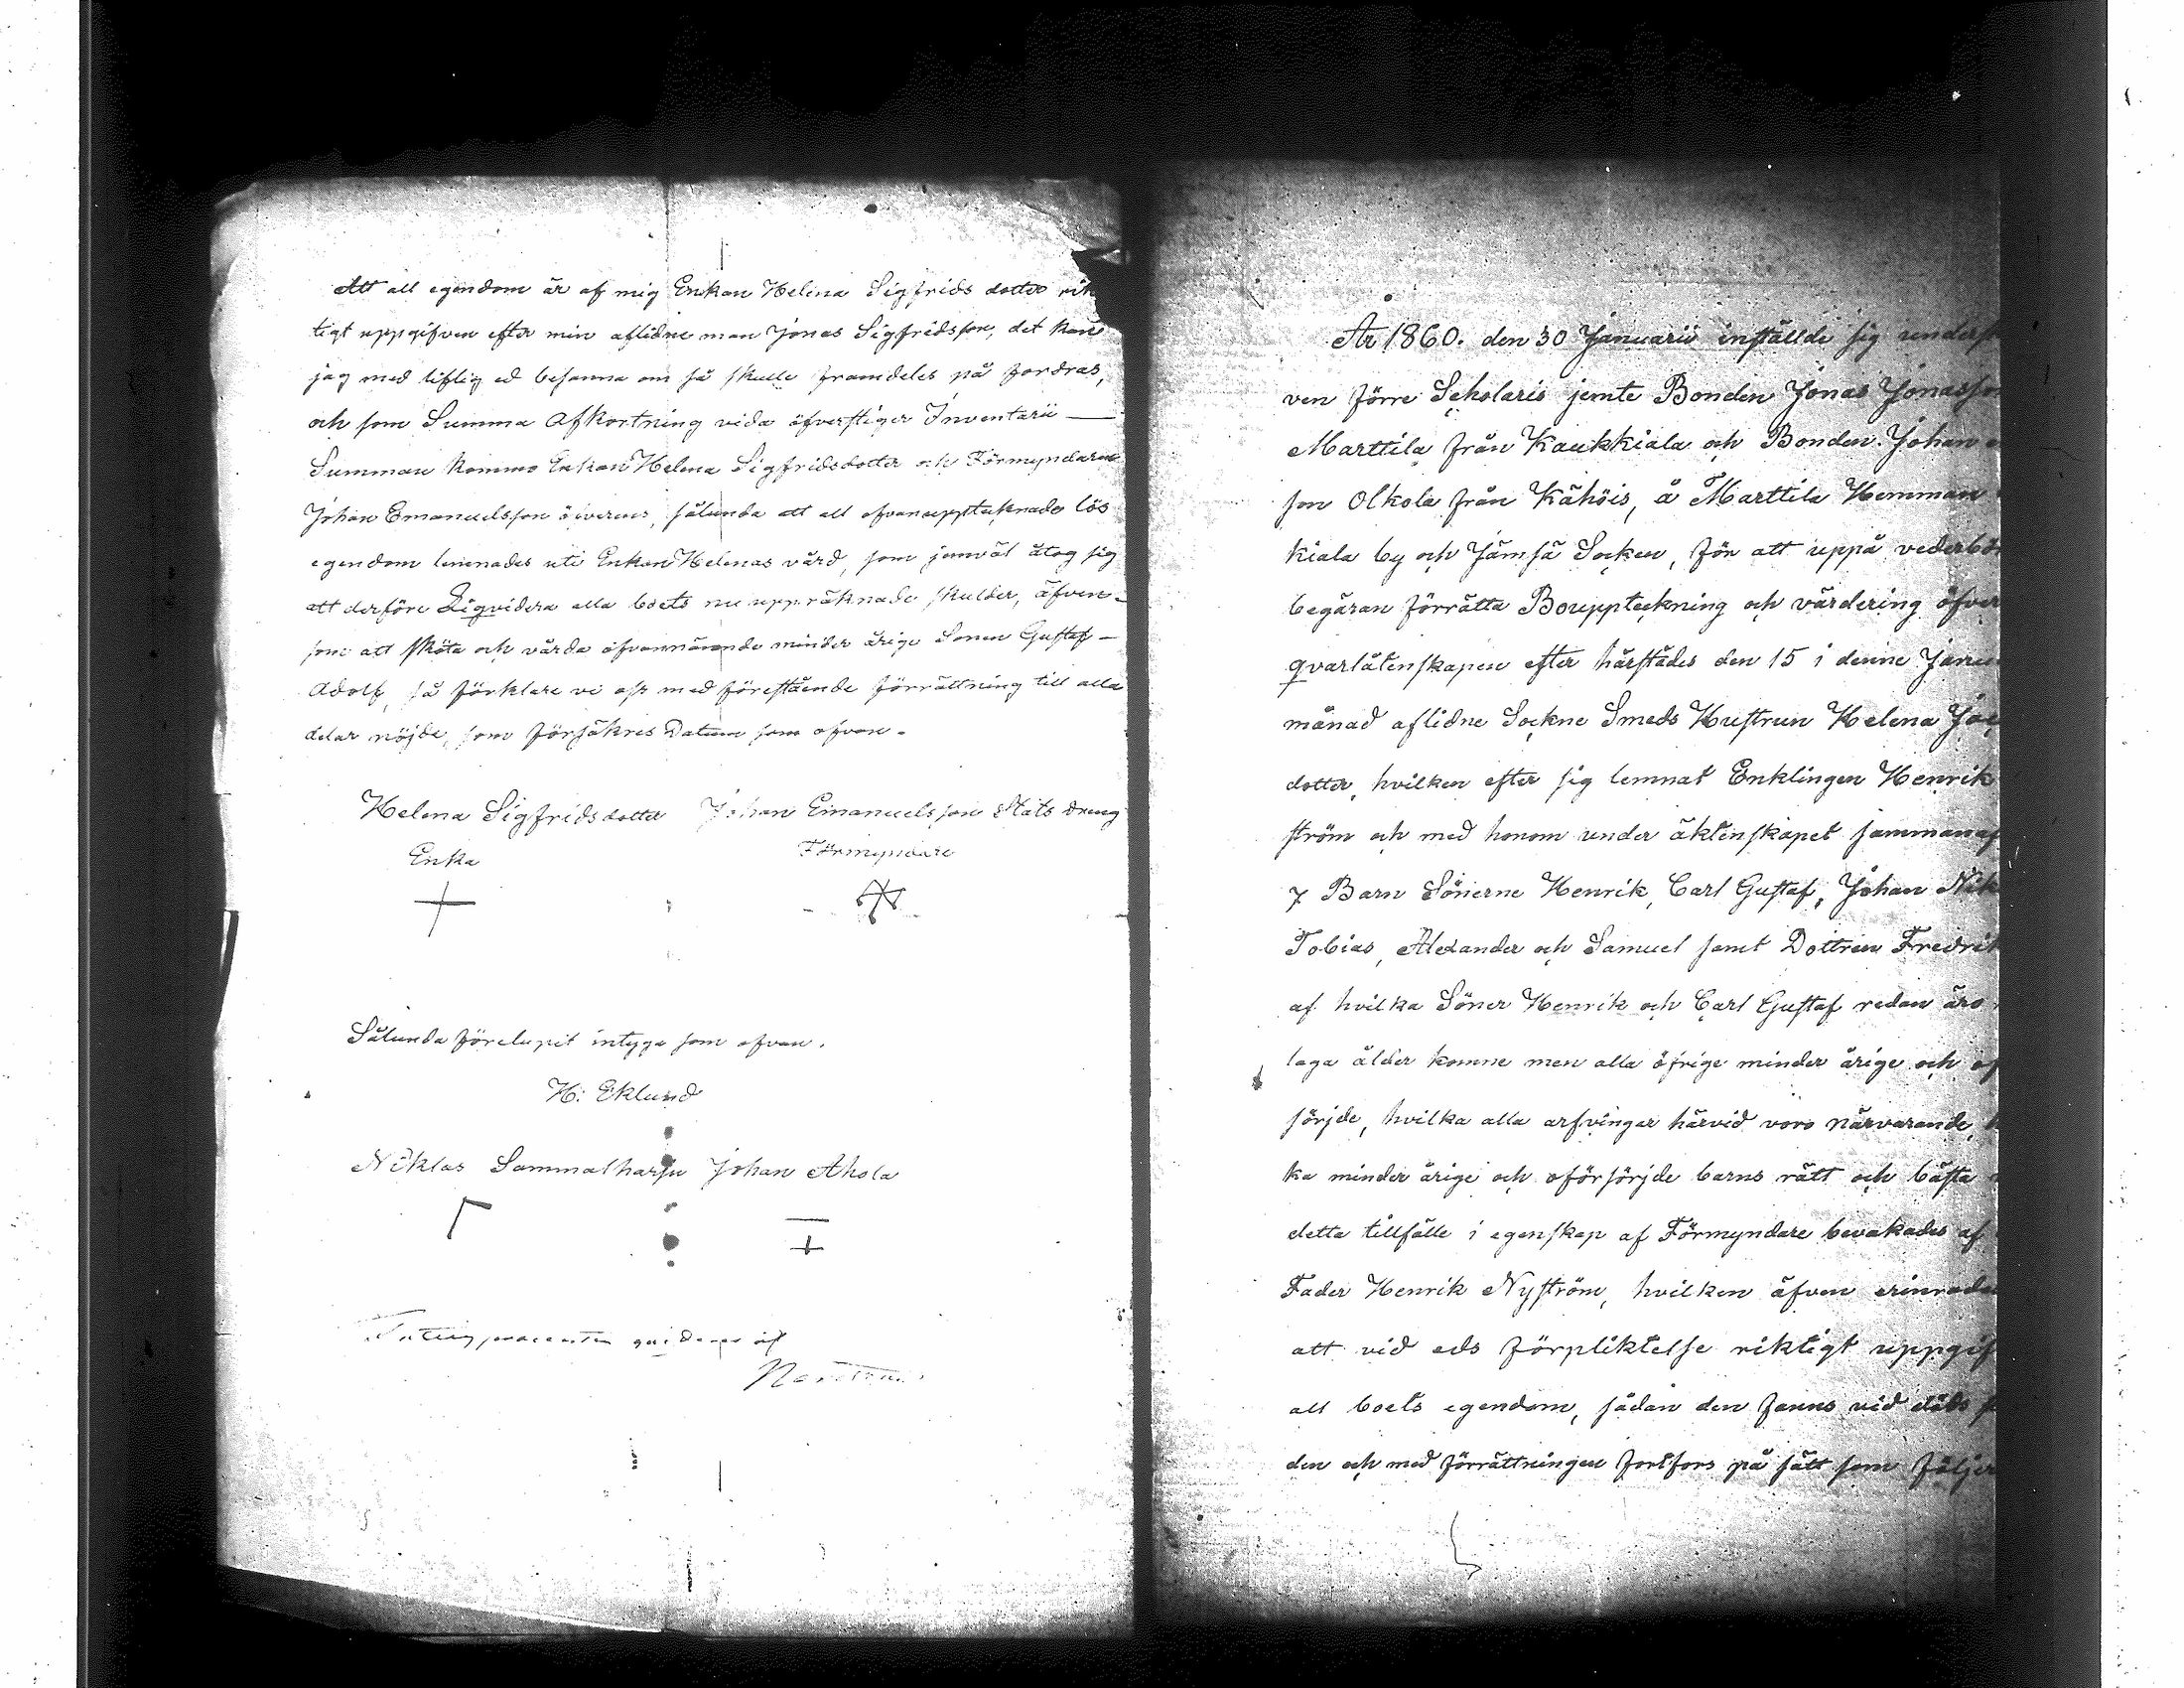 Att all egendom är af mig Enkan Helena Sigfrids dotter rik
tigt uppgifven efter min aflidne man Jonas Sigfridsson, det kan
jag med liflig ed besanna om så skulle framdeles på fordras,
och som Summa Afkortning vida öfverstiger Inventarii —
Summan kommo Enkan Helena Sigfridsdotter och Förmyndaren
Johan Emanuelsson öfverens, sålunda att all ofvanupptecknade lös
egendom lemnades uti Enkan Helenas vård, som jemväl åtog sig
att derföre Liqvidera alla boets nu uppräknade skulder, äfven-
som att sköta och vårda ofvannämnde minder årige Sonen Gustaf —
Adolf, så förklare vi oss med förestående förrättning till alla
delar nöjde, som försäkres Datum som ofvan.
Helena Sigfridsdotter Johan Emanuelsson Stats dreng
Enka Förmyndare
Sålunda förelupit intyga som ofvan.
H: Eklund
Niklas Sammalharju Johan Ahola
af
År 1860. den 30 Januarii inställde sig unders
ven förre Scholaris jemte Bonden Jonas Jonasson
Marttila från Kaukkiala och Bonden Johan
son Olkola från Kähöis, å Marttila Hemman
kiala by och Jämsä Socken, för att uppå vederbö
begäran förrätta Bouppteckning och värdering öfver
qvarlåtenskapen efter härstädes den 15 i denne Janu
månad aflidne Sockne Smeds Hustrun Helena
dotter, hvilken efter sig lemnat Enklingen Henrik
ström och med honom under äktenskapet sammanaf
7 Barn Sönerne Henrik, Carl Gustaf, Johan Nik
Tobias, Alexander och Samuel samt Dottren Fredrik
af hvilka Söner Henrik och Carl Gustaf redan äro
laga ålder komne men alla öfrige minder årige och of
sörjde, hvilka alla arfvingar härvid voro närvarande,
ka minder årige och oförsörjde barns rätt och bästa
detta tillfälle i egenskap af Förmyndare bevakades af
Fader Henrik Nyström, hvilken äfven erinrades
att vid eds förpliktelse riktigt uppgif
all boets egendom, sådan den fanns vid döds
den och med förrättningen fortfors på sätt som följer